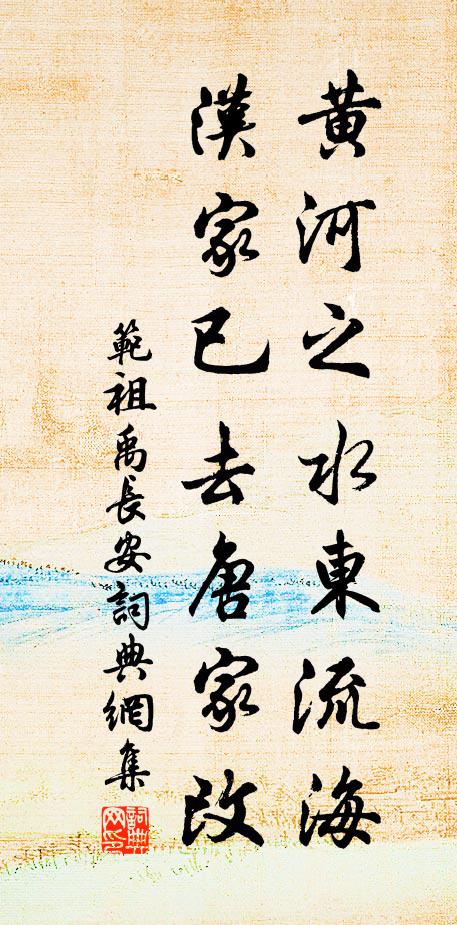 黄河之水東流海
漢家已去唐家改
範祖禹長安詞典網集
詞典網印